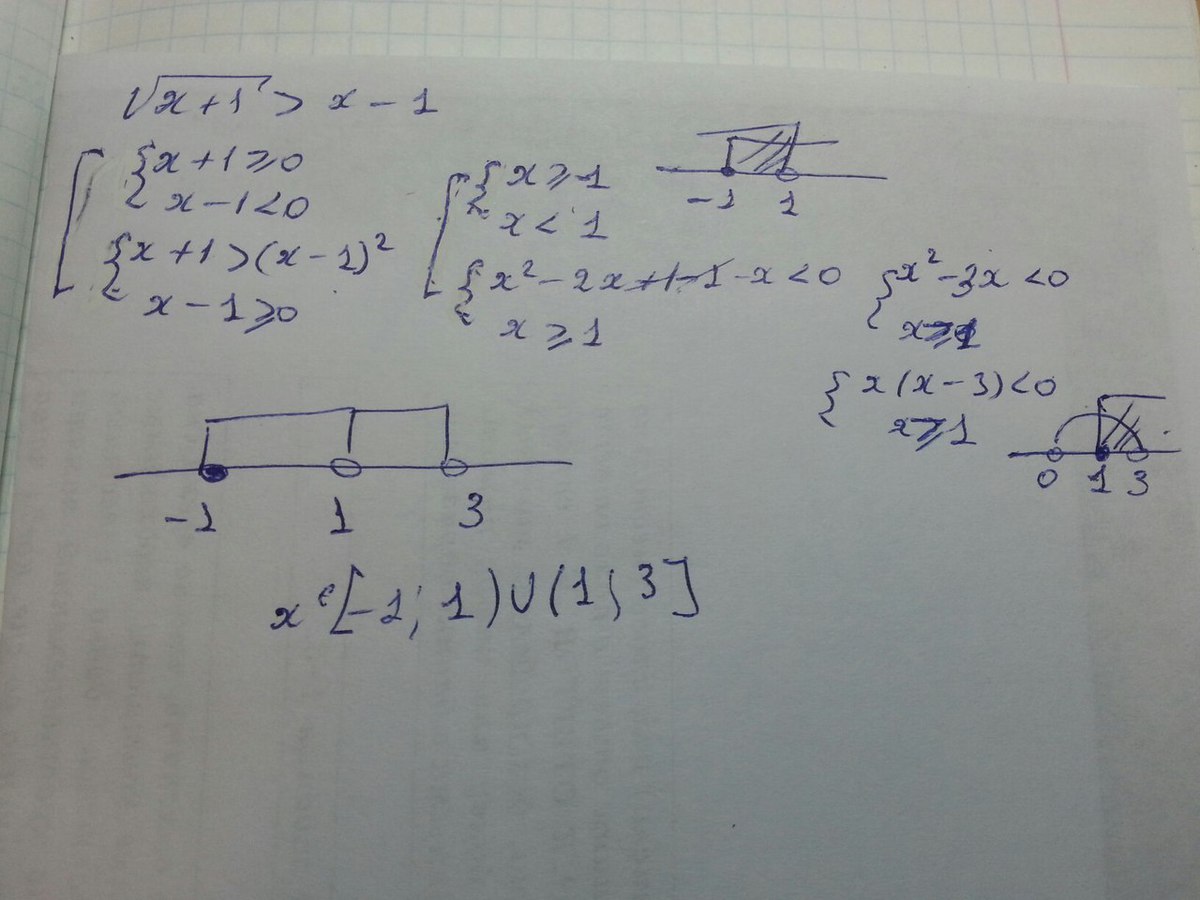 √x+1 > x - 1
{x + 1 ≥ 0
x - 1 < 0
{x + 1 > (x - 1)²
x - 1 ≥ 0
{x ≥ -1
x < 1
{x² - 2x + 1 - 1 - x < 0
x ≥ 1
-1 1
{x² - 3x < 0
x ≥ 1
{x(x - 3) < 0
x ≥ 1
0 1 3
-1 1 3
x ∈ [-1; 1) ∪ (1; 3]